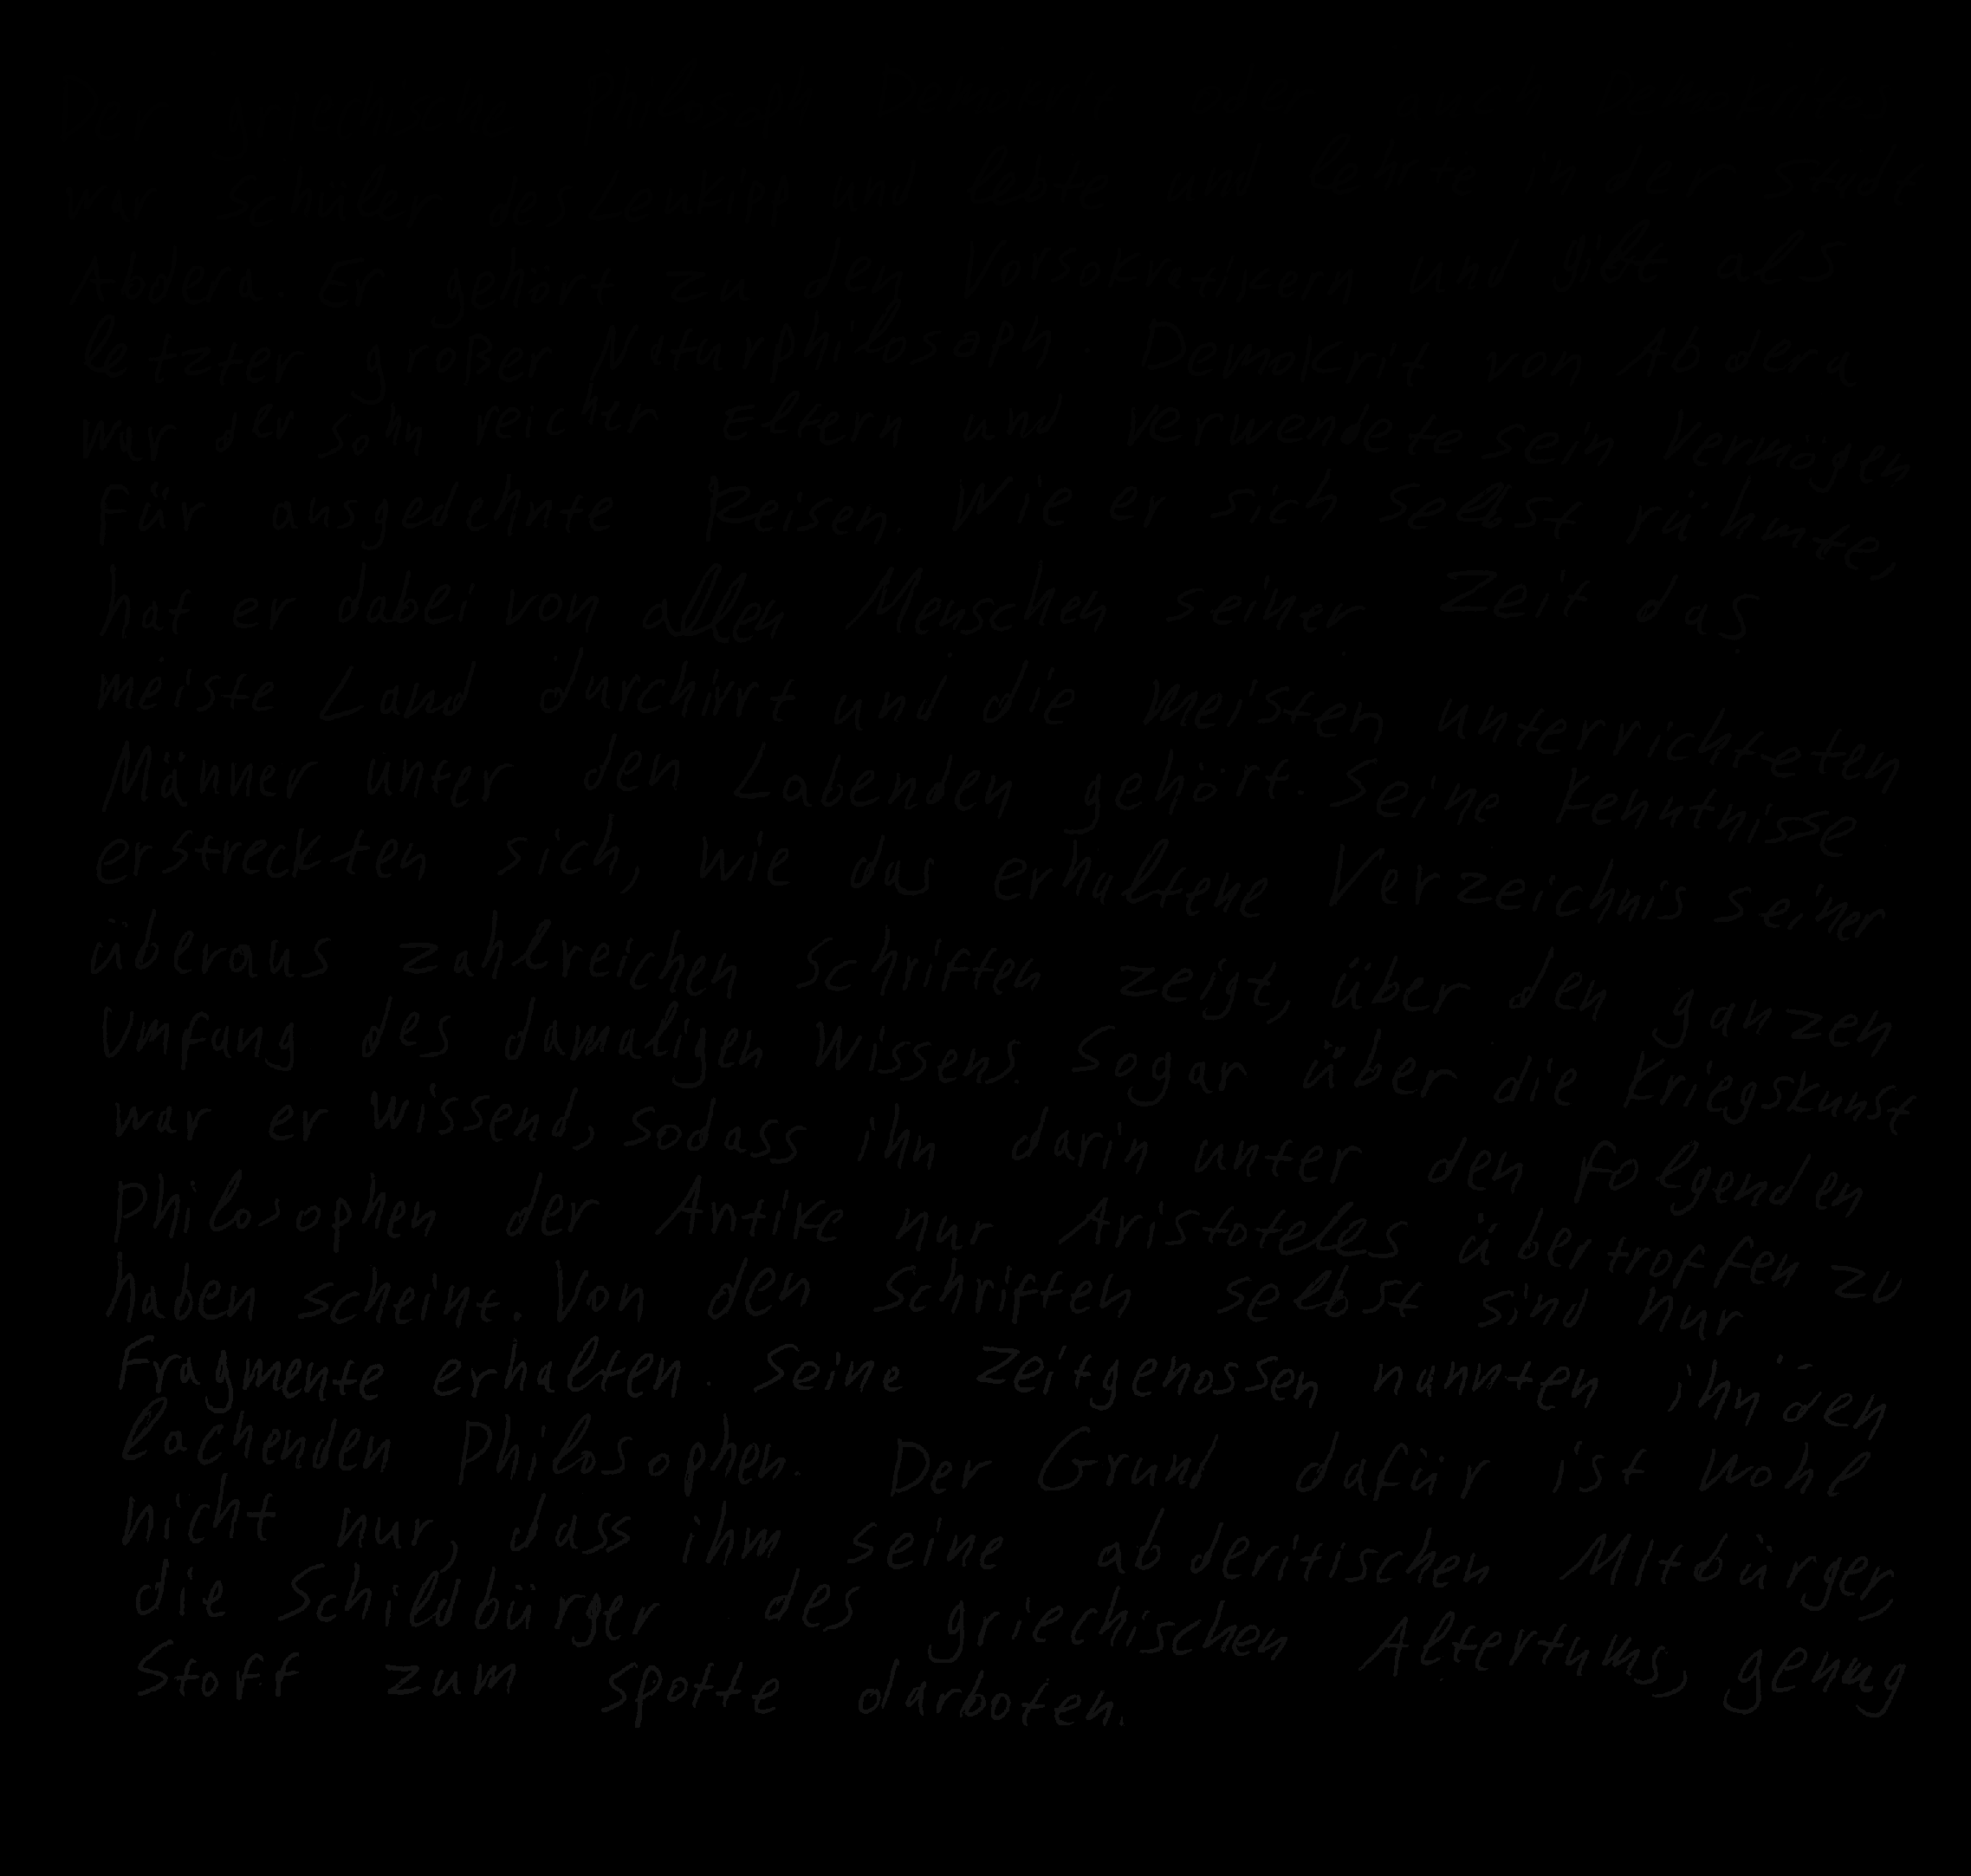 war Schüler des Leukipp und lebte und lehrte in der Stadt
Abdera. Er gehört zu den Vorsokratikern und gilt als
letzter großer Naturphilosoph. Demokrit von Abdera
war der Sohn reicher Eltern und verwendete sein Vermögen
für ausgedehnte Reisen. Wie er sich selbst rühmte,
hat er dabei von allen Menschen seiner Zeit das
meiste Land durchirrt und die meisten unterrichteten
Männer unter den Labenden gehört. Seine Kenntnisse
erstreckten sich, wie das erhaltene Verzeichnis seiner
überaus zahlreichen Schriften zeigt, über den ganzen
Umfang des damaligen Wissens. Sogar über die Kriegskunst
war er wissend, sodass ihn darin unter den folgenden
Philosophen der Antike nur Aristoteles übertroffen zu
haben scheint. Von den Schriften selbst sind nur
Fragmente erhalten. Seine Zeitgenossen nannten ihn den
lachenden Philosophen. Der Grund dafür ist wohl
nicht nur, dass ihm seine abderitischen Mitbürger,
die Schildbürger des griechischen Altertums, genug
Stoff zum Spotte darboten.